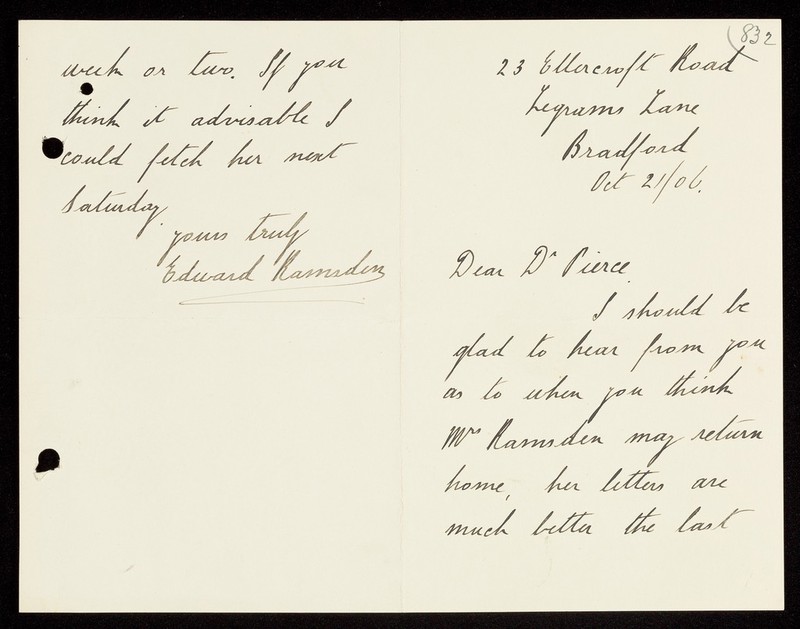 (832
23 Ellercroft Road
Legrams Lane
Bradford
Oct 21/06.
Dear Dr Pierce
I should be
glad to hear from you
as to when you think
Mrs Ramsden may return
home, her letters are
much better the last
week or two. If you
think it advisable I
could fetch her next
Saturday.
yours truly
Edward Ramsden